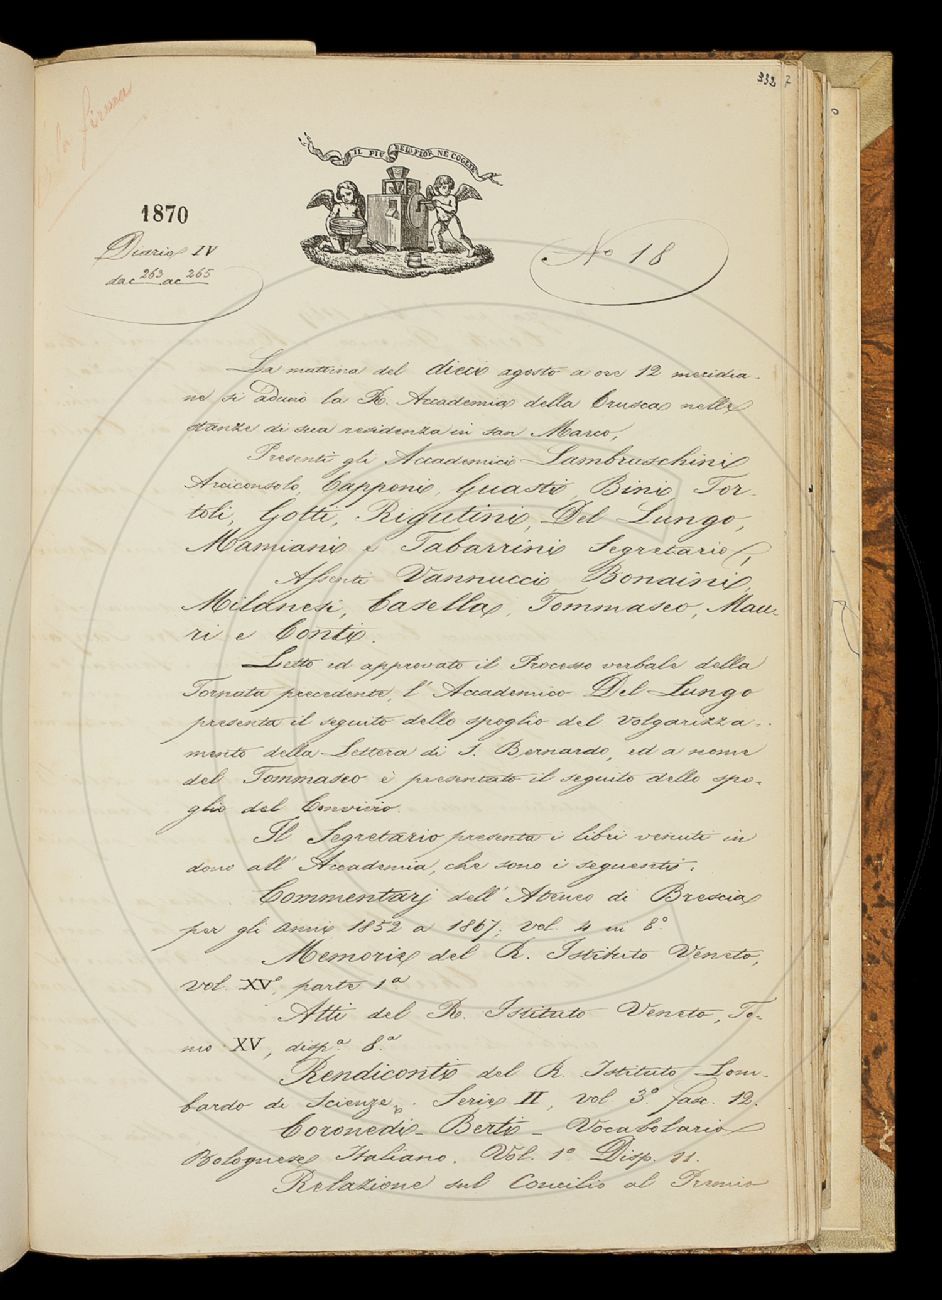 332 7
la firma
IL PIÙ BEL FIOR NE COGLIE
1870
Diario IV
da c 263 a c 265
No 18
La mattina del dieci agosto a ore 12 meridia-
ne si adunò la R. Accademia della Crusca nelle
stanze di sua residenza in san Marco,
Presenti gli Accademici Lambruschini
Arciconsolo, Capponi, Guasti, Bini, Tor-
toli, Gotti, Rigutini, Del Lungo,
Mamiani e Tabarrini Segretario;
Assenti Vannucci Bonaini,
Milanesi, Casella, Tommaseo, Mau-
ri e Conti.
Letto ed approvato il Processo verbale della
Tornata precedente, l'Accademico Del Lungo
presenta il seguito dello spoglio del volgarizza-
mento della Lettera di S. Bernardo, ed a nome
del Tommaseo è presentato il seguito dello spo-
glio del Convivio.
Il Segretario presenta i libri venuti in
dono all'Accademia, che sono i seguenti:
Commentarj dell'Ateneo di Brescia
per gli anni 1852 a 1867; vol. 4 in 8°
Memorie del R. Istituto Veneto,
vol. XV° parte 1a
Atti del R. Istituto Veneto, To-
mo XV, disp.a 8.a
Rendiconti del R. Istituto Lom-
bardo di Scienze. Serie II, vol 3° fasc. 12.
Coronedi-Berti - Vocabolario
Bolognese Italiano. Vol. 1° Disp. 11.
Relazione sul Concilio al Premio